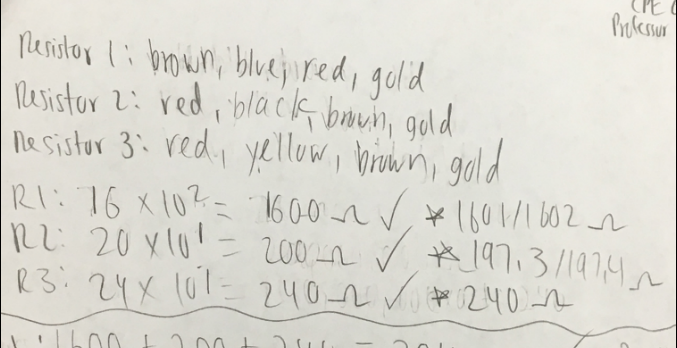 CPE
Professor
Resistor 1: brown, blue, red, gold
Resistor 2: red, black, brown, gold
Resistor 3: red, yellow, brown, gold
R1: 16 × 10² = 1600 Ω ✓ * 1601/1602 Ω
R2: 20 × 10¹ = 200 Ω ✓ * 197.3/197.4 Ω
R3: 24 × 10¹ = 240 Ω ✓ * 240 Ω